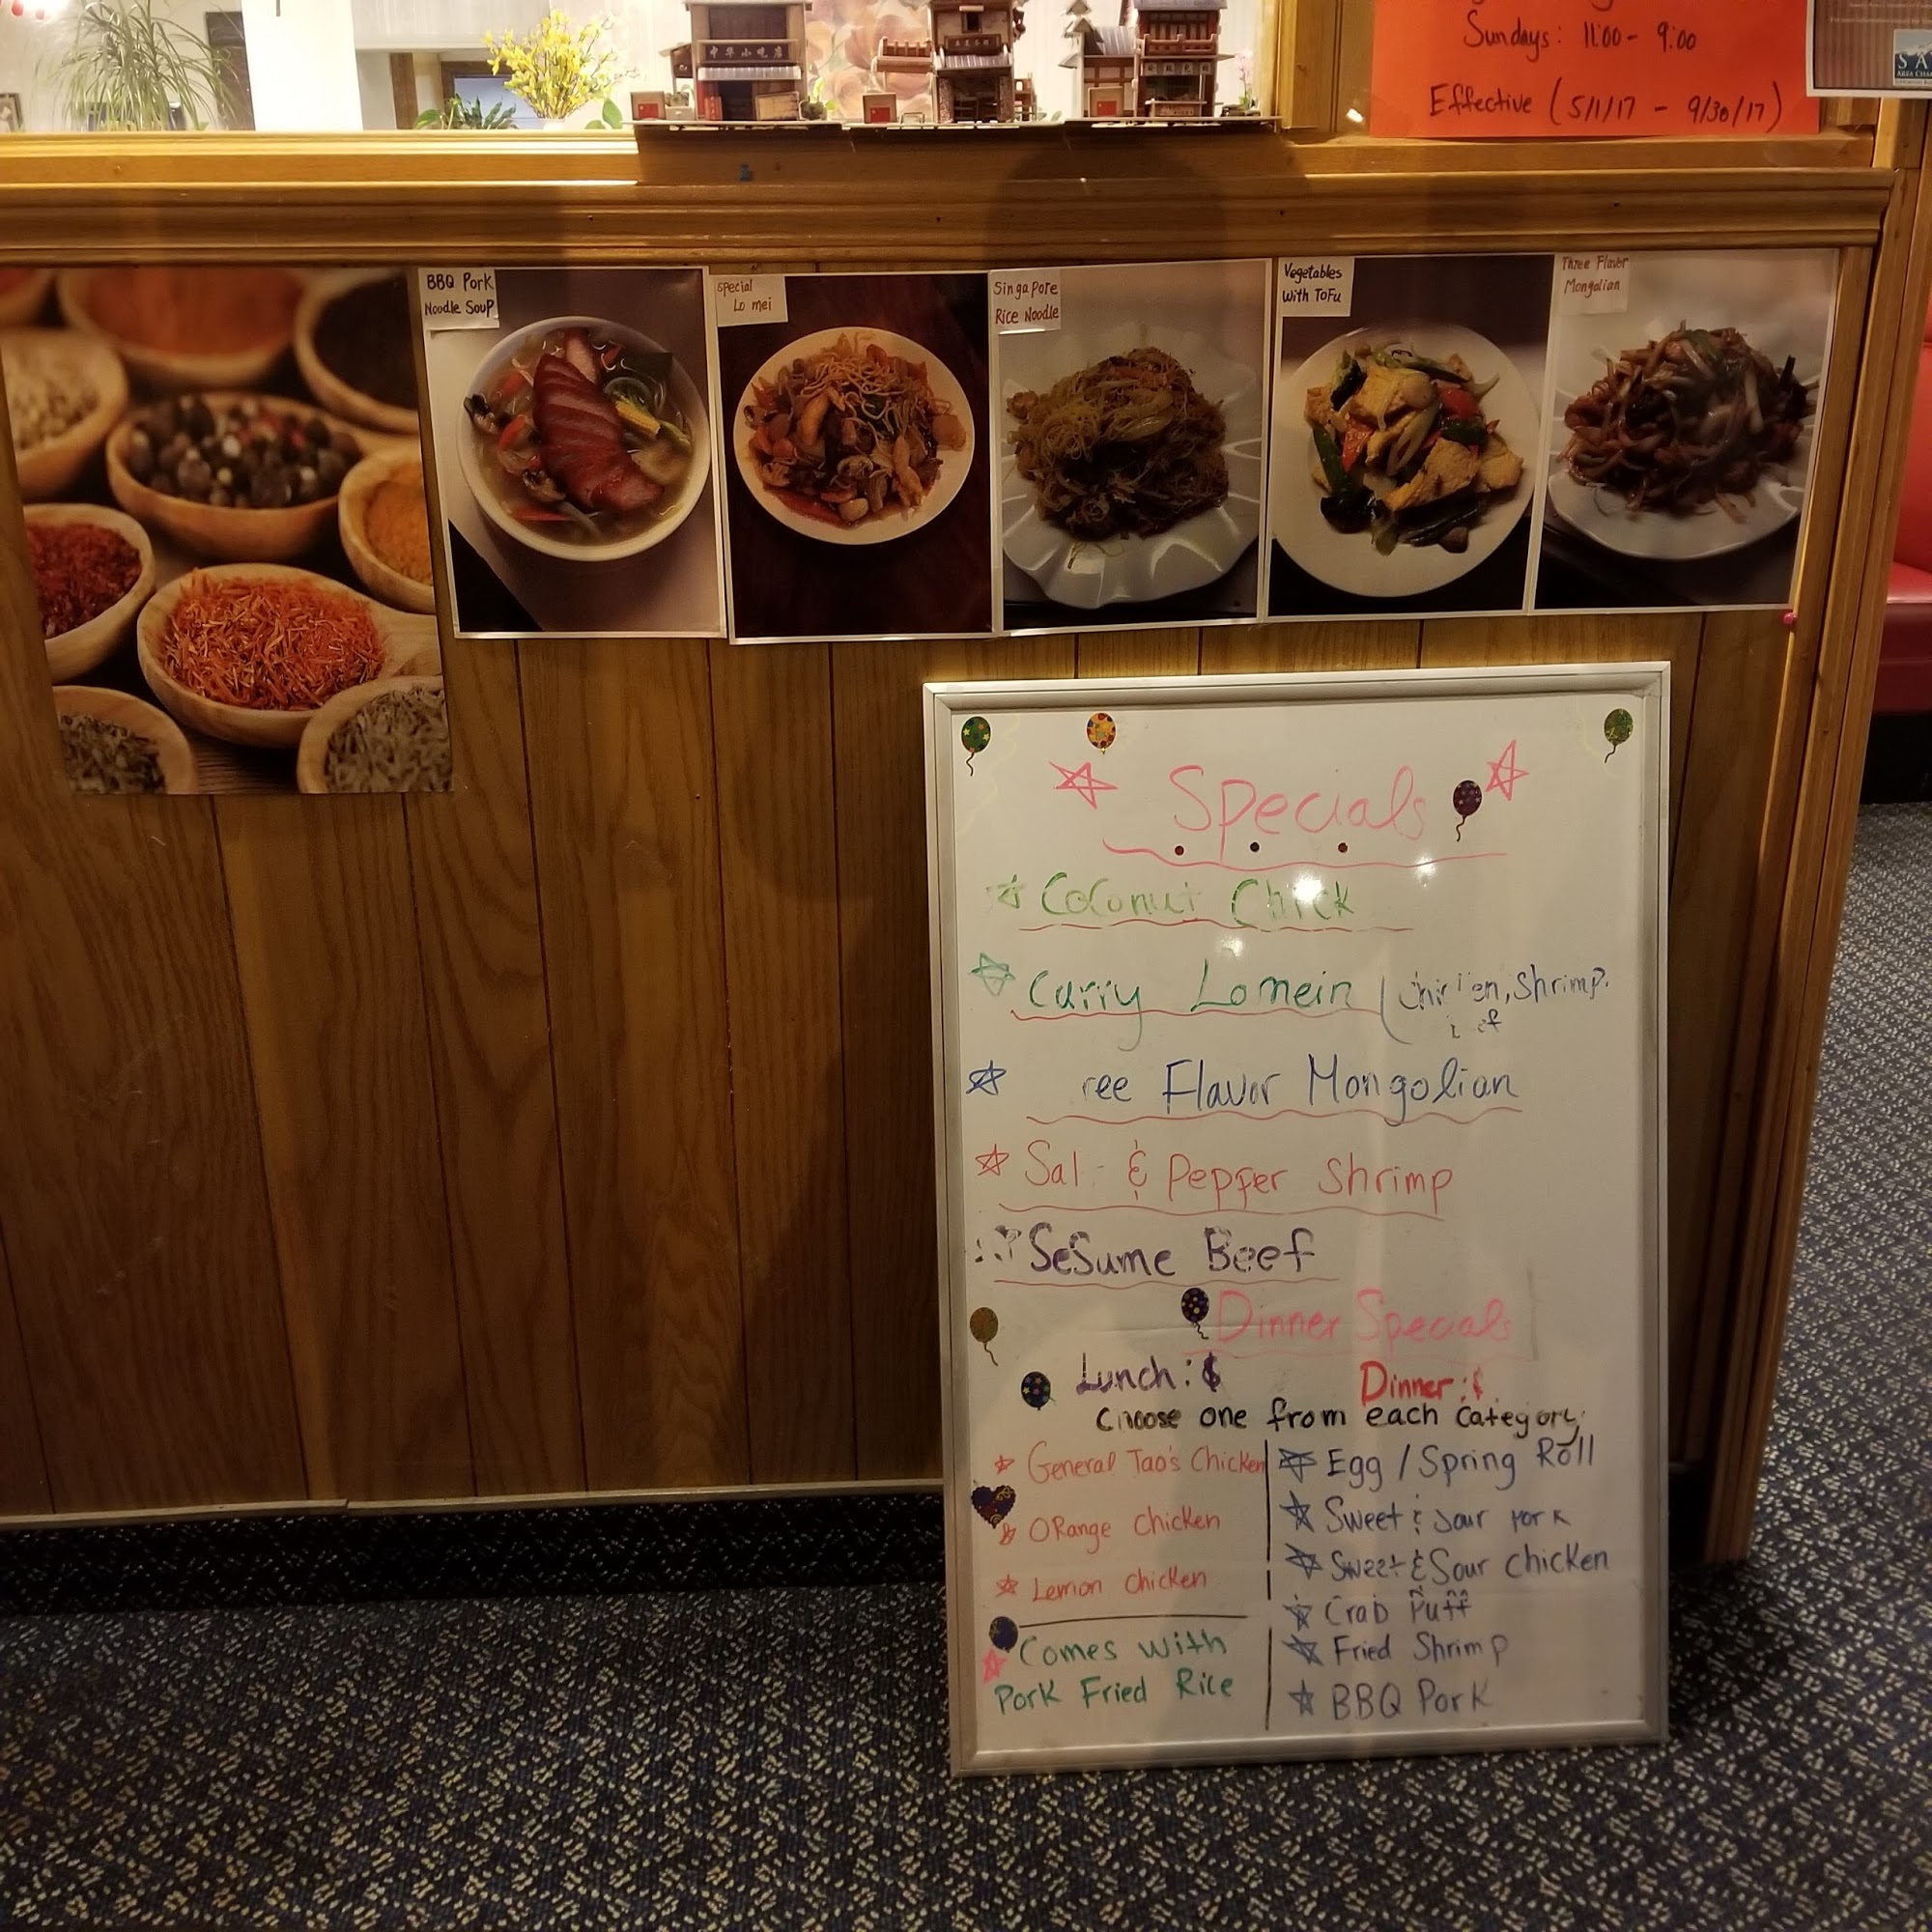 中华小吃店
Sundays: 11:00 - 9:00
Effective (5/1/17 - 9/30/17)
BBQ Pork
Noodle Soup
Special
Lo mei
Singapore
Rice Noodle
Vegetables
With ToFu
Three Flavor
Mongolian
Specials
Coconut Chick
Curry Lomein (Chicken, Shrimp.
ree Flavor Mongolian
Sal & Pepper Shrimp
SeSume Beef
Dinner Specials
Lunch: $
Dinner: $
Choose one from each Category
General Tao's Chicken
ORange Chicken
Lemon Chicken
Comes With
Pork Fried Rice
Egg / Spring Roll
Sweet & Sour Pork
Sweet & Sour Chicken
Crab Puff
Fried Shrimp
BBQ Pork